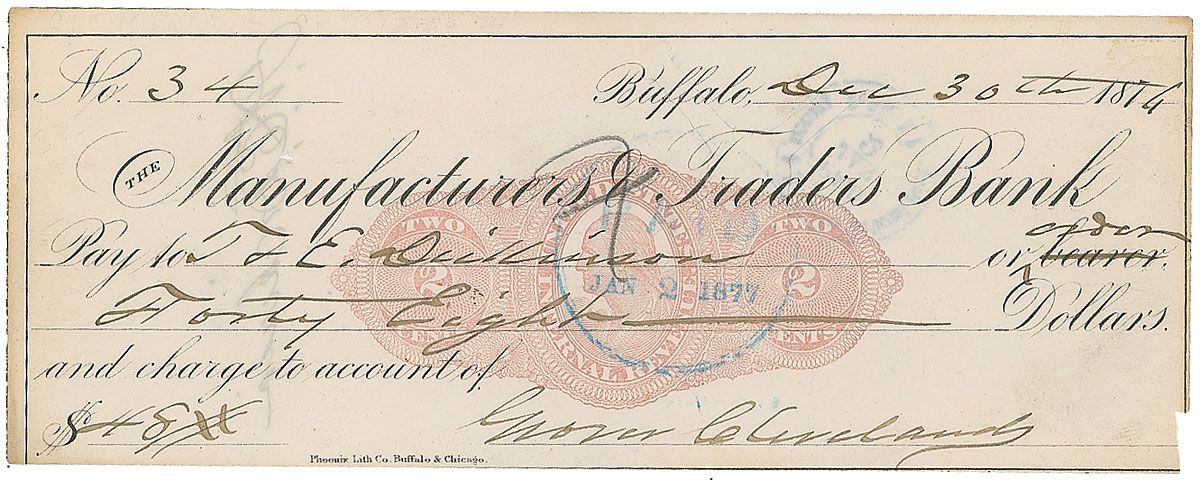 No. 34 Buffalo, Dec 30th 1876
THE Manufacturers & Traders Bank
Pay to T & E. Dickinson or bearer. order
Forty Eight Dollars.
and charge to account of
$48 Grover Cleveland
TWO 2 CENTS UNITED STATES INTERNAL REVENUE TWO 2 CENTS
PAID
JAN 2 1877
Phoenix Lith Co. Buffalo & Chicago.